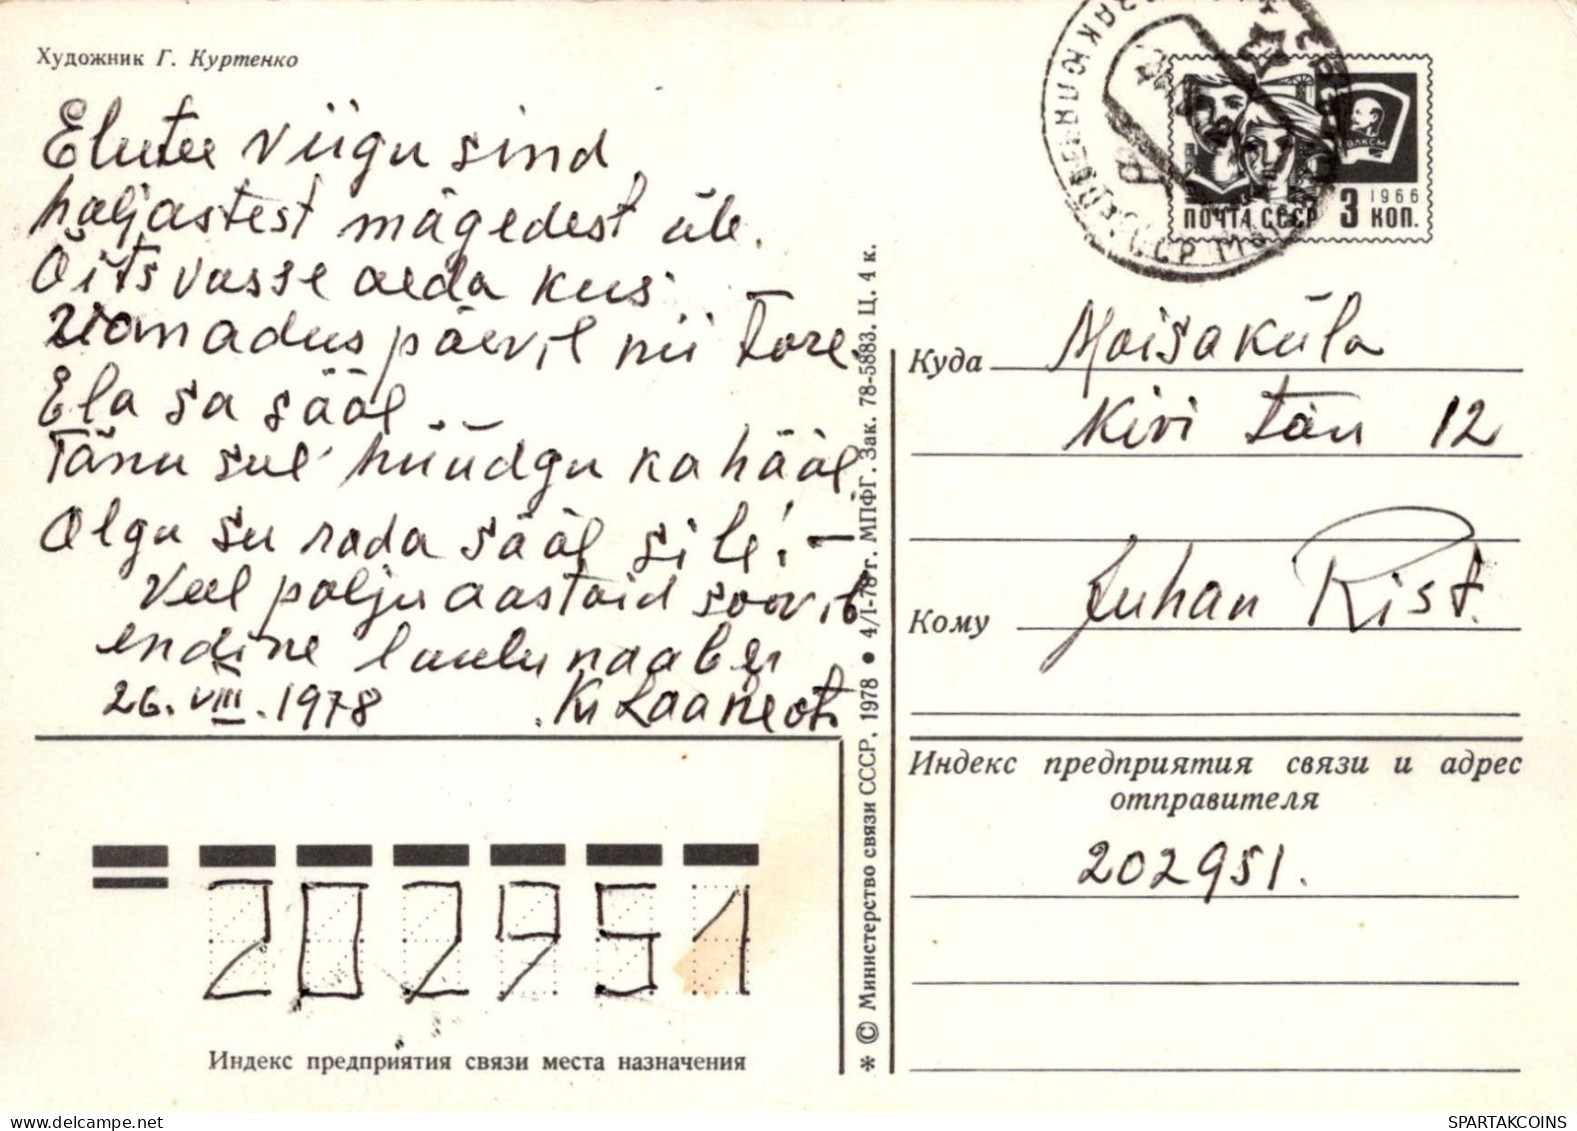 Художник Г. Куртенко
Elutee viigu sind
haljastest mägedest üle.
Õitsvasse aeda kus
elamadus päevil nii tore.
Ela sa sääl
Tänu sul' hüüdgu ka hääl
Olgu su rada sääl sile! –
Veel palju aastaid soovib
endine laulu naaber
26. VIII. 1978 K. Laaneots
ПОЧТА СССР 3 КОП.
1966
ВЛКСМ
Куда Moisaküla
Kivi tän 12
Кому Juhan Rist.
Индекс предприятия связи и адрес
отправителя
202951.
202951
Индекс предприятия связи места назначения
* © Министерство связи СССР, 1978 • 4/I-78 г. МПФГ. Зак. 78-5883. Ц. 4 к.
SPARTAKCOINS